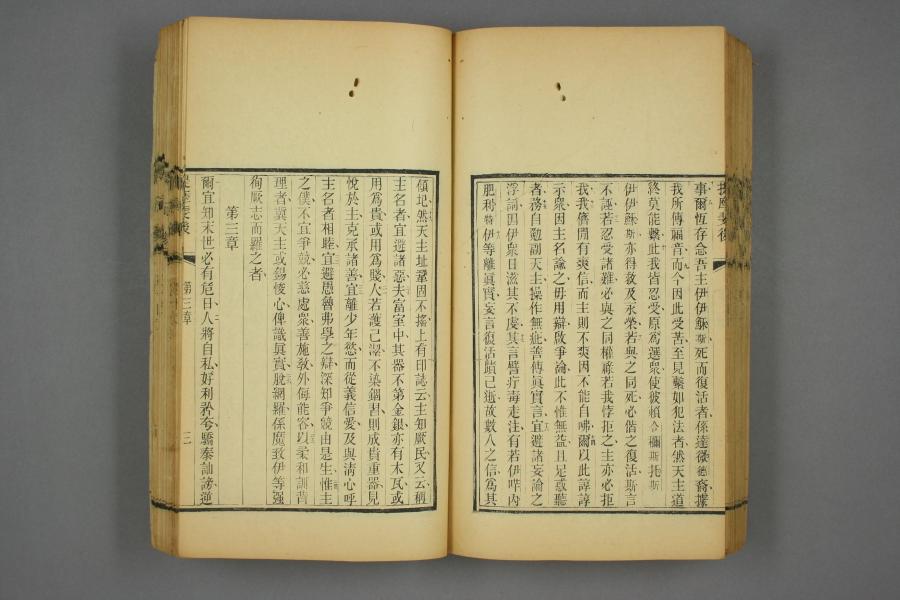 事爾恆存念吾主伊伊穌斯死而復活者係達微德裔據
我所傳福音而今因此受苦至見繫如犯法者然天主道
終莫能繫此我皆忍受原為選眾使彼賴合爾斯托斯
伊伊穌斯亦得救及永榮若與之同死必偕之復活斯言
不誣若忍受諸難必與之同權祿若我悖拒之主亦必拒
我我儕間有爽信而主則不爽因不能自咈爾以此諄諄
示眾因主名諭之毋用辯啟爭論此不惟無益且足惑聽
者務自勉副天主操作無疵善傳真實言宜避諸妄論之
浮詞因伊眾日滋其不虔其言譬疔毒走注有若伊
肥利特伊等離真實妄言復活蹟已逝故數人之信為其
傾圮然天主址鞏固不搖上有印誌云主知厥民又云稱
主名者宜避諸惡夫富室中其器不第金銀亦有木瓦或
用為貴或用為賤人若護己潔不染錮習則成貴重器見
悅於主克承諸善宜離少年慾而從義信愛及與清心呼
主名者相睦宜避愚魯弗學之辯深知爭競由是生惟主
之僕不宜爭競必慈處眾善施教外侮能容以柔和訓背
理者冀天主或錫悛心俾識真實脫網羅係魔致伊等强
徇厥志而羅之者
第三章
爾宜知末世必有危日人將自私好利矜夸驕泰訕謗逆
第三章
三